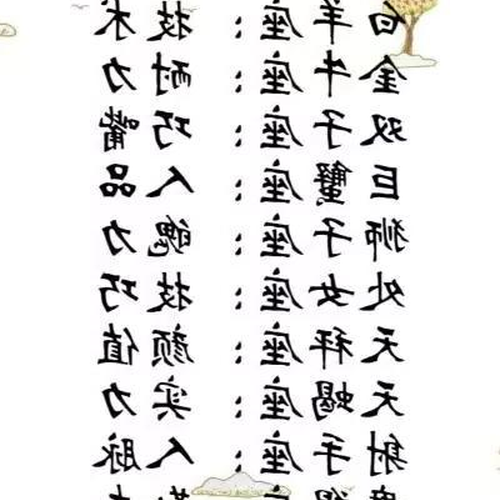 白羊座：技术
金牛座：耐力
双子座：巧嘴
巨蟹座：人品
狮子座：魄力
处女座：技巧
天秤座：颜值
天蝎座：实力
射手座：人脉